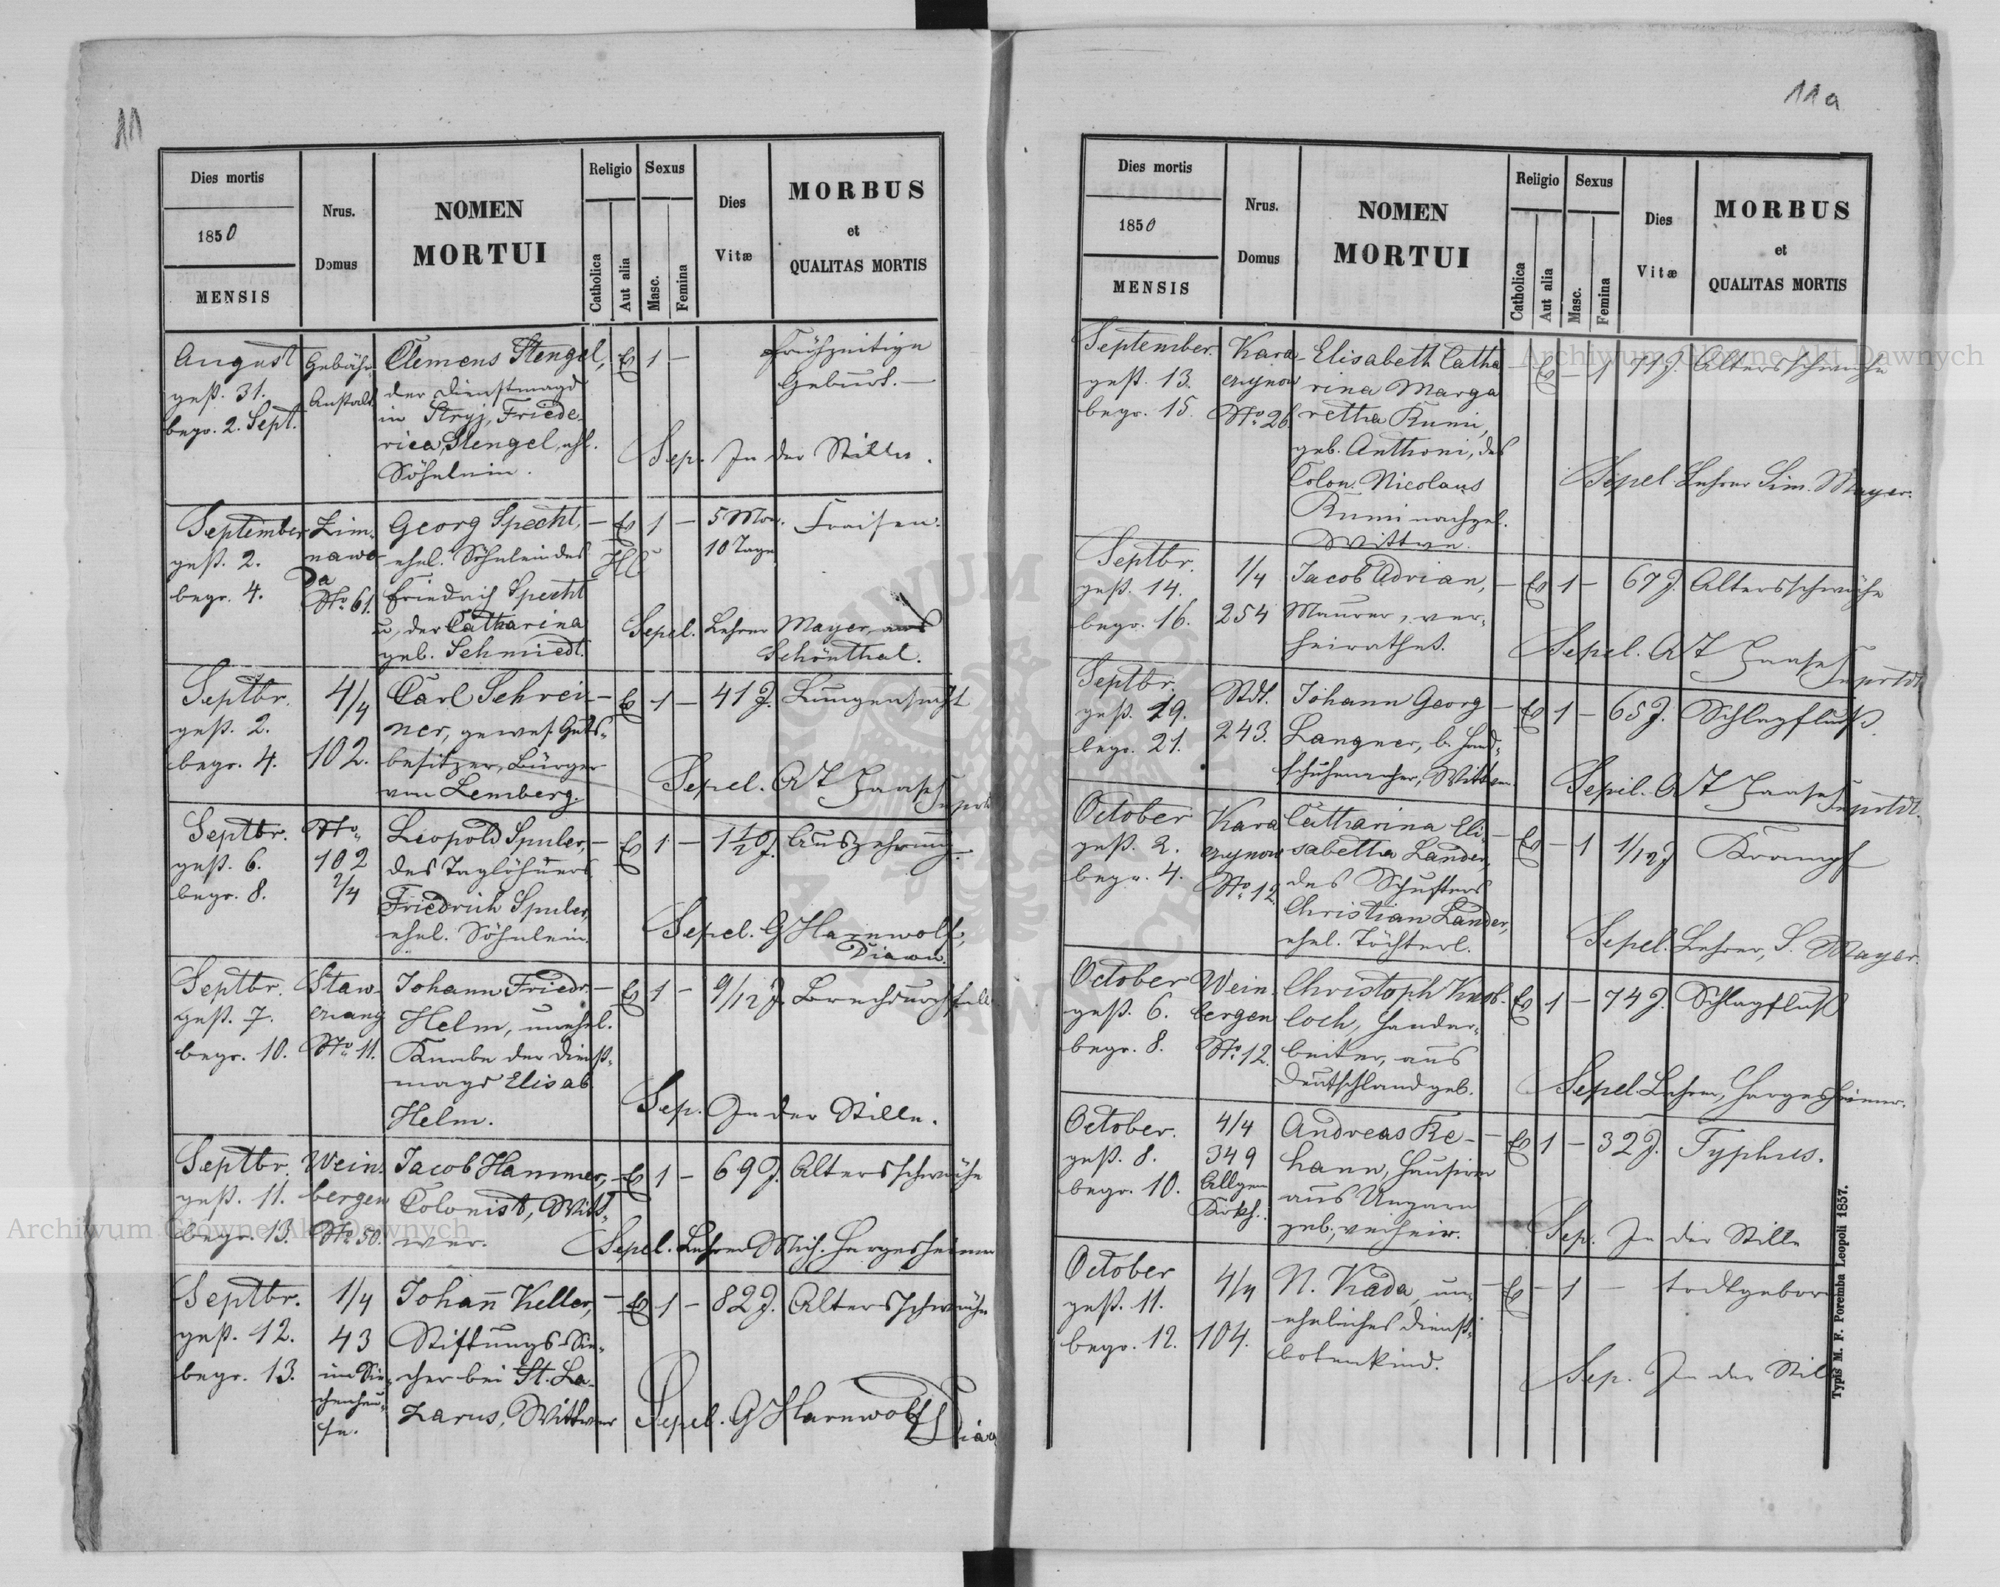 11
Dies mortis
1850
MENSIS
Nrus.
Domus
NOMEN
MORTUI
Religio
Catholica
Aut alia
Sexus
Masc.
Femina
Dies
Vitæ
MORBUS
et
QUALITAS MORTIS
August
gest. 31.
begr. 2. Sept.
Gebähr-
Anstalt
Clemens Stengel,
der Dienstmagd
in Stryj, Friede-
rica Stengel, ehl.
Söhnlein.
Ev 1 –
Frühzeitige
Geburt. –
Sep. In der Stille.
September
gest. 2.
begr. 4.
Zim-
nawo-
da
No. 61.
Georg Specht, –
ehel. Söhnlein des
Friedrich Specht
u. der Catharina
geb. Schmiedt.
Ev 1 –
5 Mon.
10 Tage
Fraisen.
Sepel. Lehrer Mayer, aus
Schönthal.
Septbr.
gest. 2.
begr. 4.
4/4
102.
Carl Schrei-
ner, gewes. Guts-
besitzer, Bürger
von Lemberg.
Ev 1 – 41 J. Lungensucht
Sepel. A T Haase
Septbr.
gest. 6.
begr. 8.
No.
102
2/4
Leopold Spuler, –
des Taglöhners
Friedrich Spuler,
ehel. Söhnlein.
Ev 1 –
Auszehrung.
Sepel. G Harnwolf,
Diacon.
Septbr.
gest. 7.
begr. 10.
Staw-
czang
No. 11.
Johann Friedr. –
Helm, unehel.
Knabe der Dienst-
magd Elisab.
Helm.
Ev 1 – 9/12 J. Brechdurchfall
Sep. In der Stille.
Septbr.
gest. 11.
begr. 13.
Wein-
bergen
No. 50.
Jacob Hammer, –
Colonist, Witt-
wer.
Ev 1 – 69 J. Altersschwäche
Sepel. Lehrer Mich. Hargesheimer
Septbr.
gest. 12.
begr. 13.
1/4
43
im Sie-
chenhau-
se.
Johan̄ Keller, –
Stiftungs-Sie-
cher bei St. La-
zarus, Wittwer
Ev 1 – 82 J. Altersschwäche
Sepel. G Harnwolf
11a
Dies mortis
1850
MENSIS
Nrus.
Domus
NOMEN
MORTUI
Religio
Catholica
Aut alia
Sexus
Masc.
Femina
Dies
Vitæ
MORBUS
et
QUALITAS MORTIS
September
gest. 13.
begr. 15.
Kara-
czynow
No. 26.
Elisabeth Catha-
rina Marga
retha Kumi,
geb. Anthoni, des
Colon. Nicolaus
Kumi nachgel.
Wittwe.
Ev – 1 77 J. Altersschwäche
Sepel Lehrer Sim. Mayer.
Septbr.
gest. 14.
begr. 16.
1/4
254
Jacob Adrian, –
Maurer, ver-
heirathet.
Ev 1 – 67 J. Altersschwäche
Sepel. A T Haase
Suprtdt.
Septbr.
gest. 19.
begr. 21.
Stdt.
243.
Johann Georg –
Langner, b. Hand-
schuhmacher, Wittwer
Ev 1 – 65 J. Schlagfluß.
Sepel. A T Haase
Suprtdt.
October
gest. 2.
begr. 4.
Kara
czynow
No. 12.
Catharina Eli-
sabetha Lander,
des Schusters
Christian Lander,
ehel. Töchterl.
Ev – 1 1/12 J Krampf
Sepel. Lehrer, S. Mayer.
October
gest. 6.
begr. 8.
Wein-
bergen
No. 12.
Christoph Knob-
loch, Handar-
beiter, aus
Deutschland geb.
Ev 1 – 74 J. Schlagfluß
Sepel Lehrer, Hargesheimer.
October.
gest. 8.
begr. 10.
4/4
349
Allgem
Krkh.
Andreas Re- –
hann, Hausirer
aus Ungarn
geb., verheir.
Ev 1 – 32 J. Typhus.
Sep. In der Stille
October
gest. 11.
begr. 12.
4/4
104.
N. Kada, un- –
eheliches Dienst-
botenkind.
Ev – 1 – todtgebor
Sep. In der Stil
Typis M. F. Poremba Leopoli 1857.
Archiwum Główne Akt Dawnych
Archiwum Główne Akt Dawnych